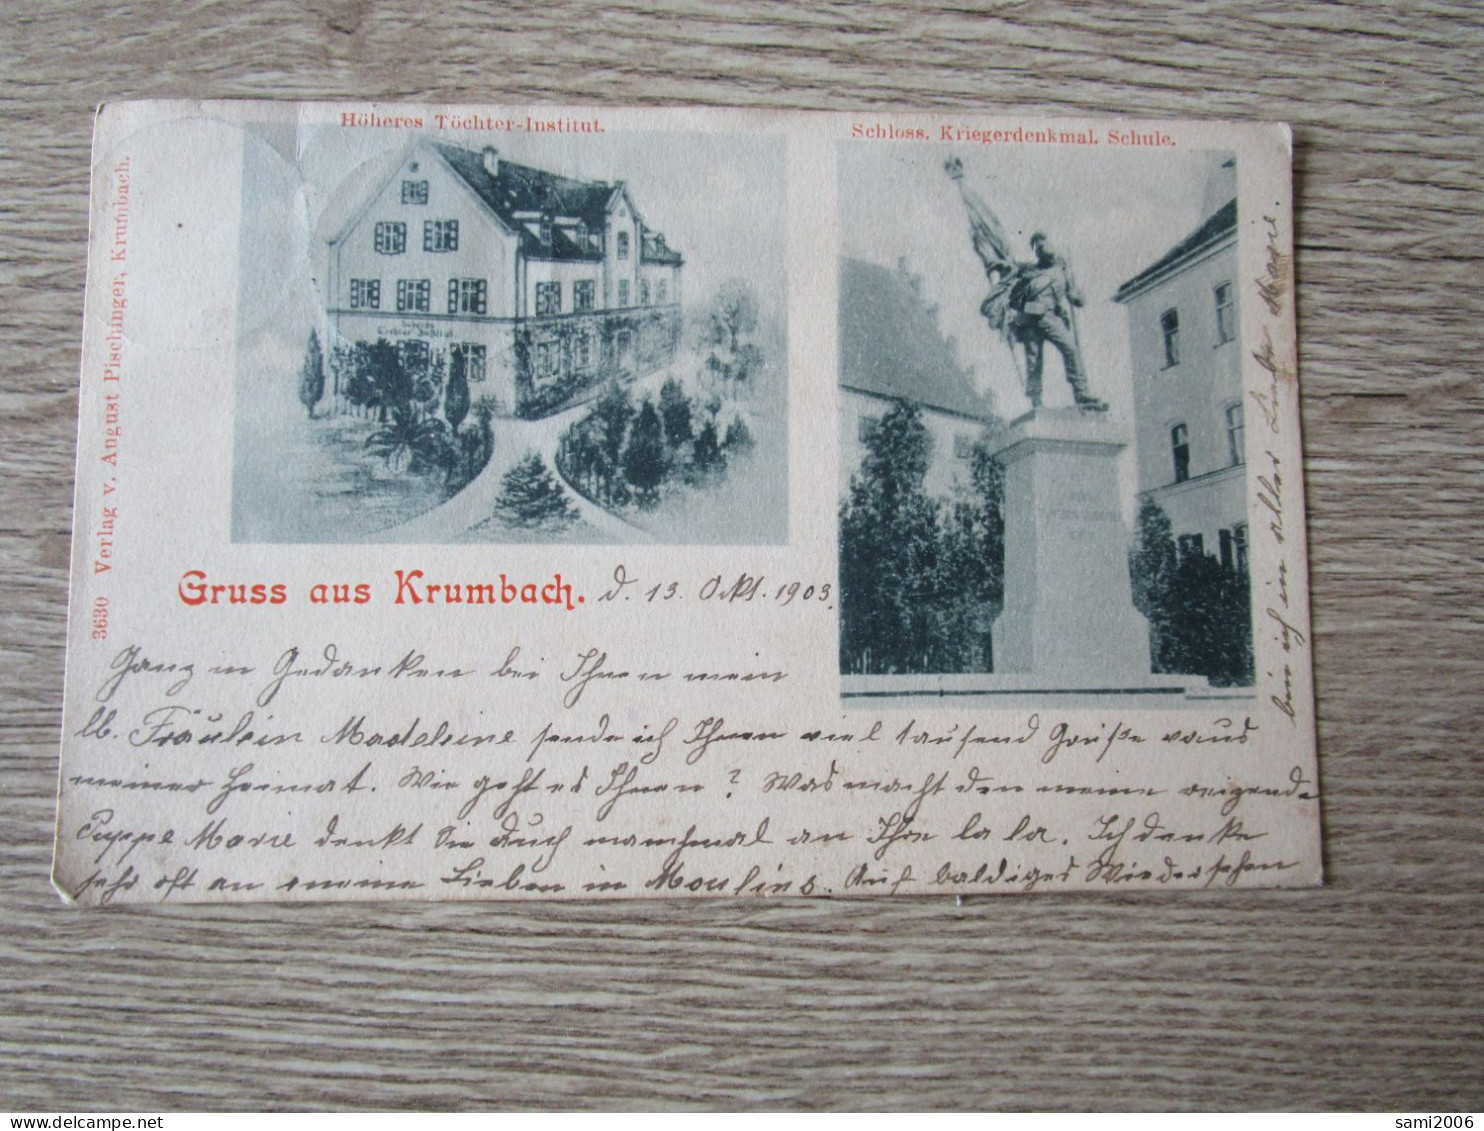 Höheres Töchter-Institut.
Schloss. Kriegerdenkmal. Schule.
3630 Verlag v. August Pischinger, Krumbach.
Höheres
Töchter Institut.
Gruss aus Krumbach. d. 13. Okt. 1903.
Ganz in Gedanken bei Ihnen mein
lb. Fräulein Madeleine sende ich Ihnen viel tausend Grüße aus
meiner Heimat. Wie geht es Ihnen? Was macht den meine reizende
Puppe Marie denkt Sie auch manchmal an Ihre la la. Ich denke
sehr oft an meine Lieben in Moulins. Auf baldiges Wiedersehen
bin ich in aller Liebe Marie.
sami2006